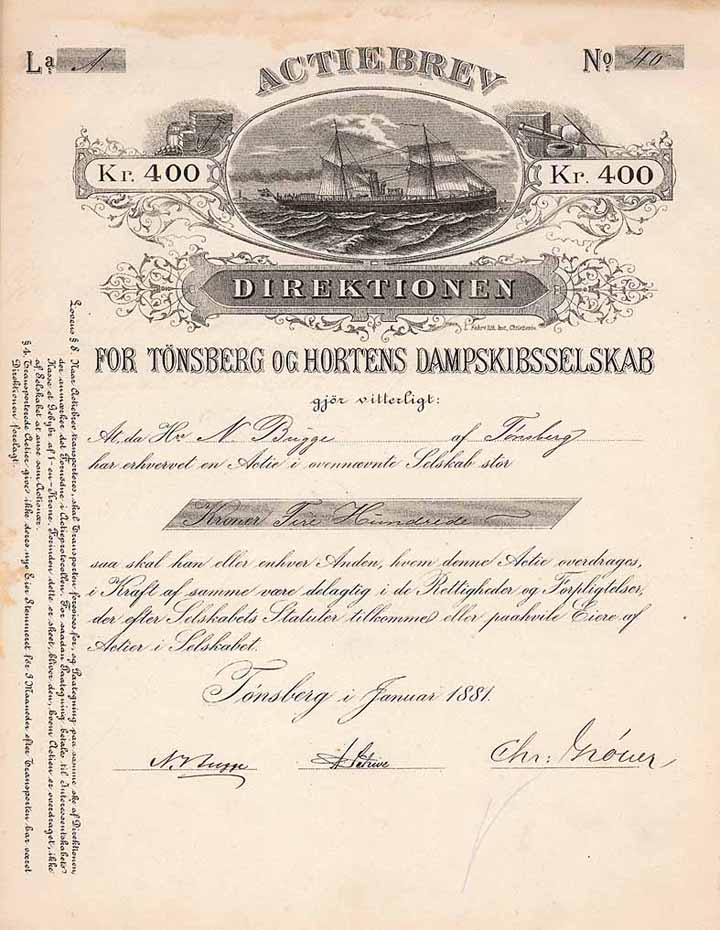 La. A.
No. 40
ACTIEBREV
Kr. 400
Kr. 400
DIREKTIONEN
Lith. Inst. Christiania
FOR TÖNSBERG OG HORTENS DAMPSKIBSSELSKAB
gjör vitterligt:
At, da Hr. N. Bugge af Tönsberg
har erhvervet en Actie i ovennævnte Selskab stor
Kroner Fire Hundrede
saa skal han eller enhver Anden, hvem denne Actie overdrages,
i Kraft af samme være delagtig i de Rettigheder og Forpligtelser,
der efter Selskabets Statuter tilkommer eller paahvile Eiere af
Actier i Selskabet.
Tönsberg i Januar 1881.
N. Bugge
Chr: Gröner
Lovens § 8. Naar Actiebrev transporteres, skal Transporten forevises for, og Paategning paa samme ske af Direktionen,
der anmærker det Fornødne i Actieprotocollen. For saadan Paategning betales til Interessentskabets
Kasse et Gebyhr af 1-en-Krone. Forinden dette er skeet, bliver den, hvem Actien er overdraget, ikke
af Selskabet at anse som Actionær.
§ 4. Transporterede Actier give ikke deres nye Eier Stemmeret før 3 Maaneder efter Transporten har været
Direktionen forelagt.